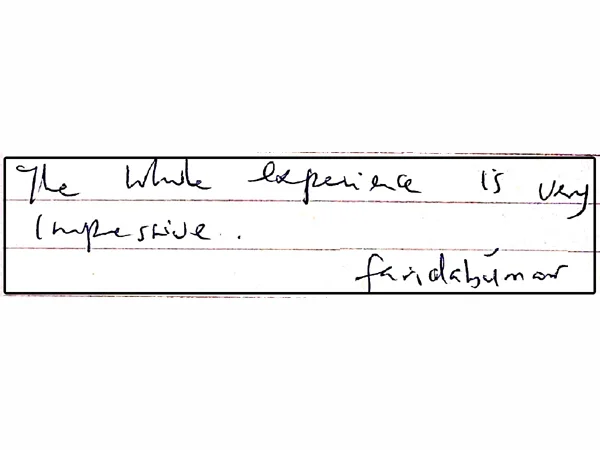 The whole experience is very
impressive.